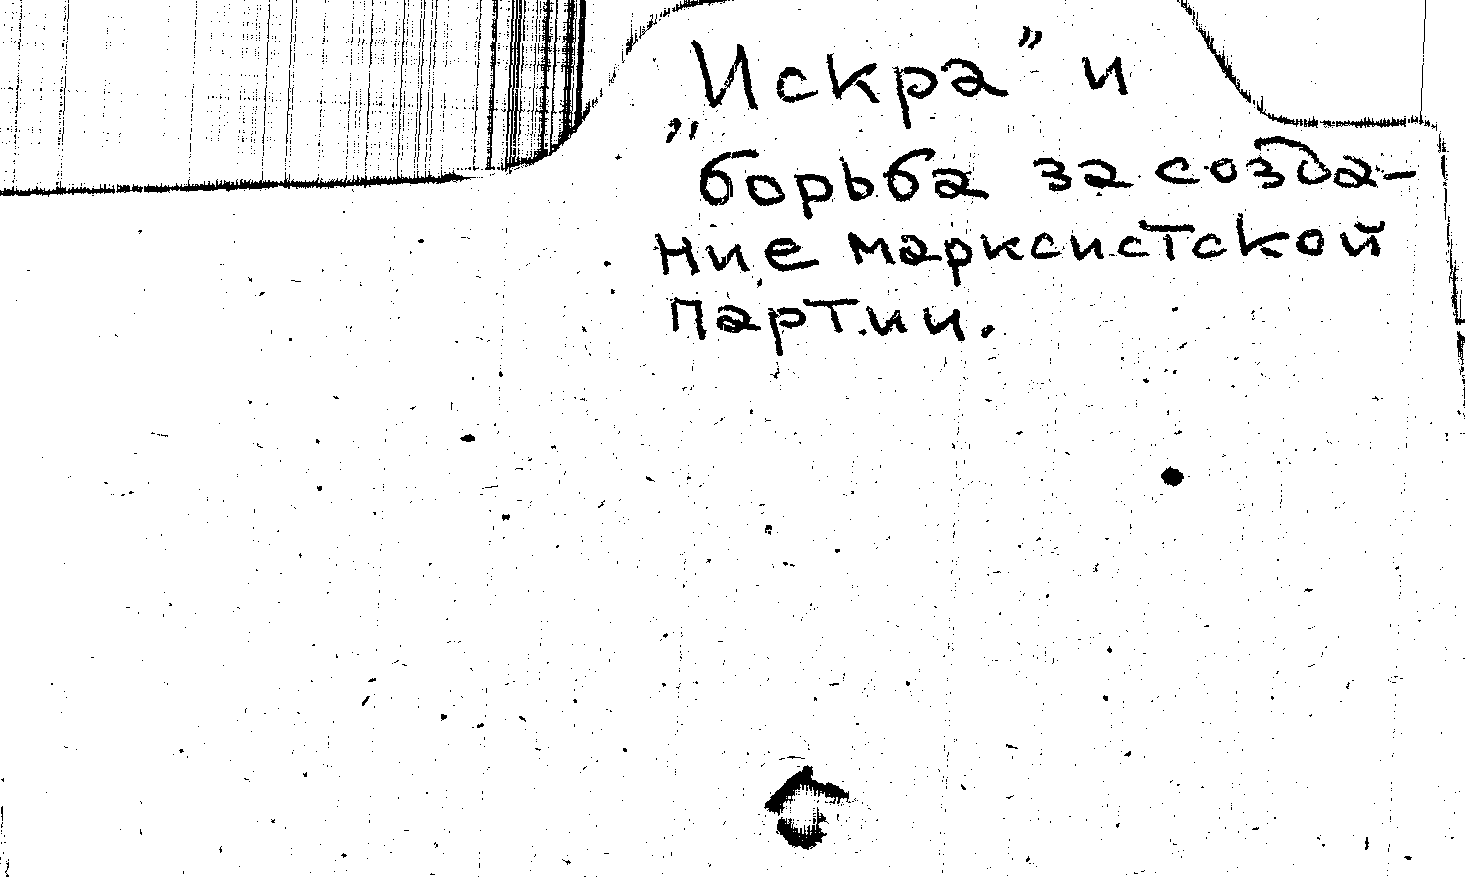 „Искра” и
борьба за созда-
ние марксистской
партии.